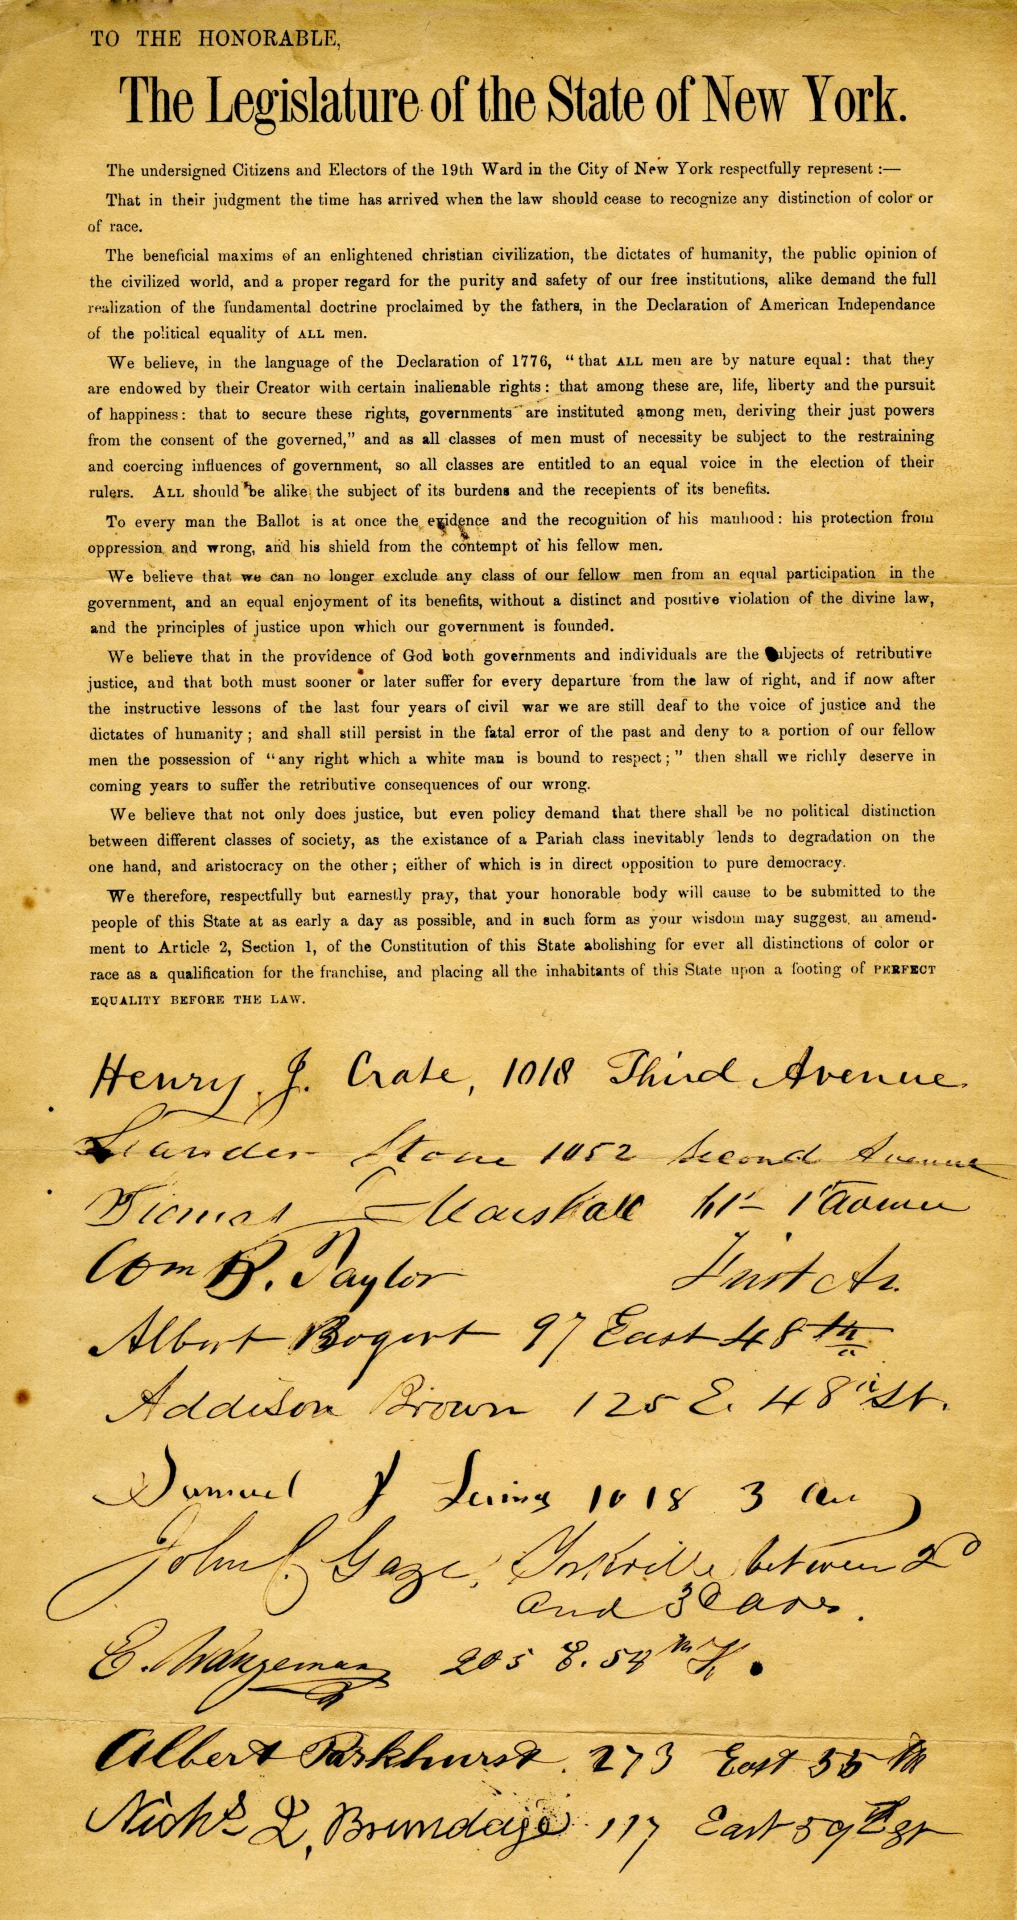 TO THE HONORABLE,
The Legislature of the State of New York.
The undersigned Citizens and Electors of the 19th Ward in the City of New York respectfully represent :—
That in their judgment the time has arrived when the law should cease to recognize any distinction of color or
of race.
The beneficial maxims of an enlightened christian civilization, the dictates of humanity, the public opinion of
the civilized world, and a proper regard for the purity and safety of our free institutions, alike demand the full
realization of the fundamental doctrine proclaimed by the fathers, in the Declaration of American Independance
of the political equality of ALL men.
We believe, in the language of the Declaration of 1776, “that ALL men are by nature equal: that they
are endowed by their Creator with certain inalienable rights: that among these are, life, liberty and the pursuit
of happiness: that to secure these rights, governments are instituted among men, deriving their just powers
from the consent of the governed,” and as all classes of men must of necessity be subject to the restraining
and coercing influences of government, so all classes are entitled to an equal voice in the election of their
rulers. ALL should be alike the subject of its burdens and the recepients of its benefits.
To every man the Ballot is at once the evidence and the recognition of his manhood: his protection from
oppression and wrong, and his shield from the contempt of his fellow men.
We believe that we can no longer exclude any class of our fellow men from an equal participation in the
government, and an equal enjoyment of its benefits, without a distinct and positive violation of the divine law,
and the principles of justice upon which our government is founded.
We believe that in the providence of God both governments and individuals are the subjects of retributive
justice, and that both must sooner or later suffer for every departure from the law of right, and if now after
the instructive lessons of the last four years of civil war we are still deaf to the voice of justice and the
dictates of humanity; and shall still persist in the fatal error of the past and deny to a portion of our fellow
men the possession of “any right which a white man is bound to respect;” then shall we richly deserve in
coming years to suffer the retributive consequences of our wrong.
We believe that not only does justice, but even policy demand that there shall be no political distinction
between different classes of society, as the existance of a Pariah class inevitably lends to degradation on the
one hand, and aristocracy on the other; either of which is in direct opposition to pure democracy.
We therefore, respectfully but earnestly pray, that your honorable body will cause to be submitted to the
people of this State at as early a day as possible, and in such form as your wisdom may suggest, an amend-
ment to Article 2, Section 1, of the Constitution of this State abolishing for ever all distinctions of color or
race as a qualification for the franchise, and placing all the inhabitants of this State upon a footing of PERFECT
EQUALITY BEFORE THE LAW.
Henry J. Crate, 1018 Third Avenue
Leander Stone 1052 Second Avenue
Thomas Marshall
Wm B. Taylor First Av.
Albert Bogert 97 East 48th
Addison Brown 125 E. 48th St.
Samuel J 1018 3 av
John C. Gaze, Yorkville between 2d
and 3d aves.
E. Wangeman 205 E. 54th St.
Albert Parkhurst. 273 East 55th
Nichs L, Brundage 117 East 59th St